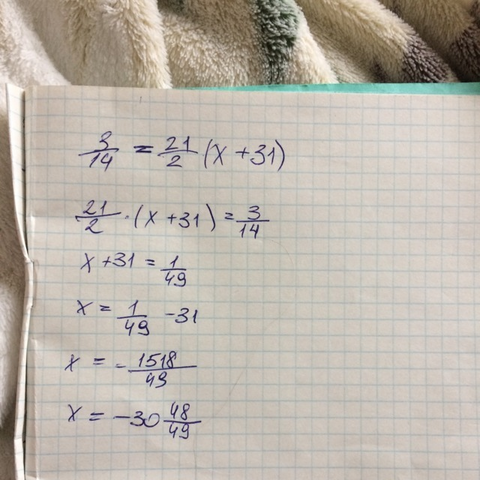 3/14 = 21/2 (x + 31)
21/2 · (x + 31) = 3/14
x + 31 = 1/49
x = 1/49 - 31
x = - 1518/49
x = -30 48/49